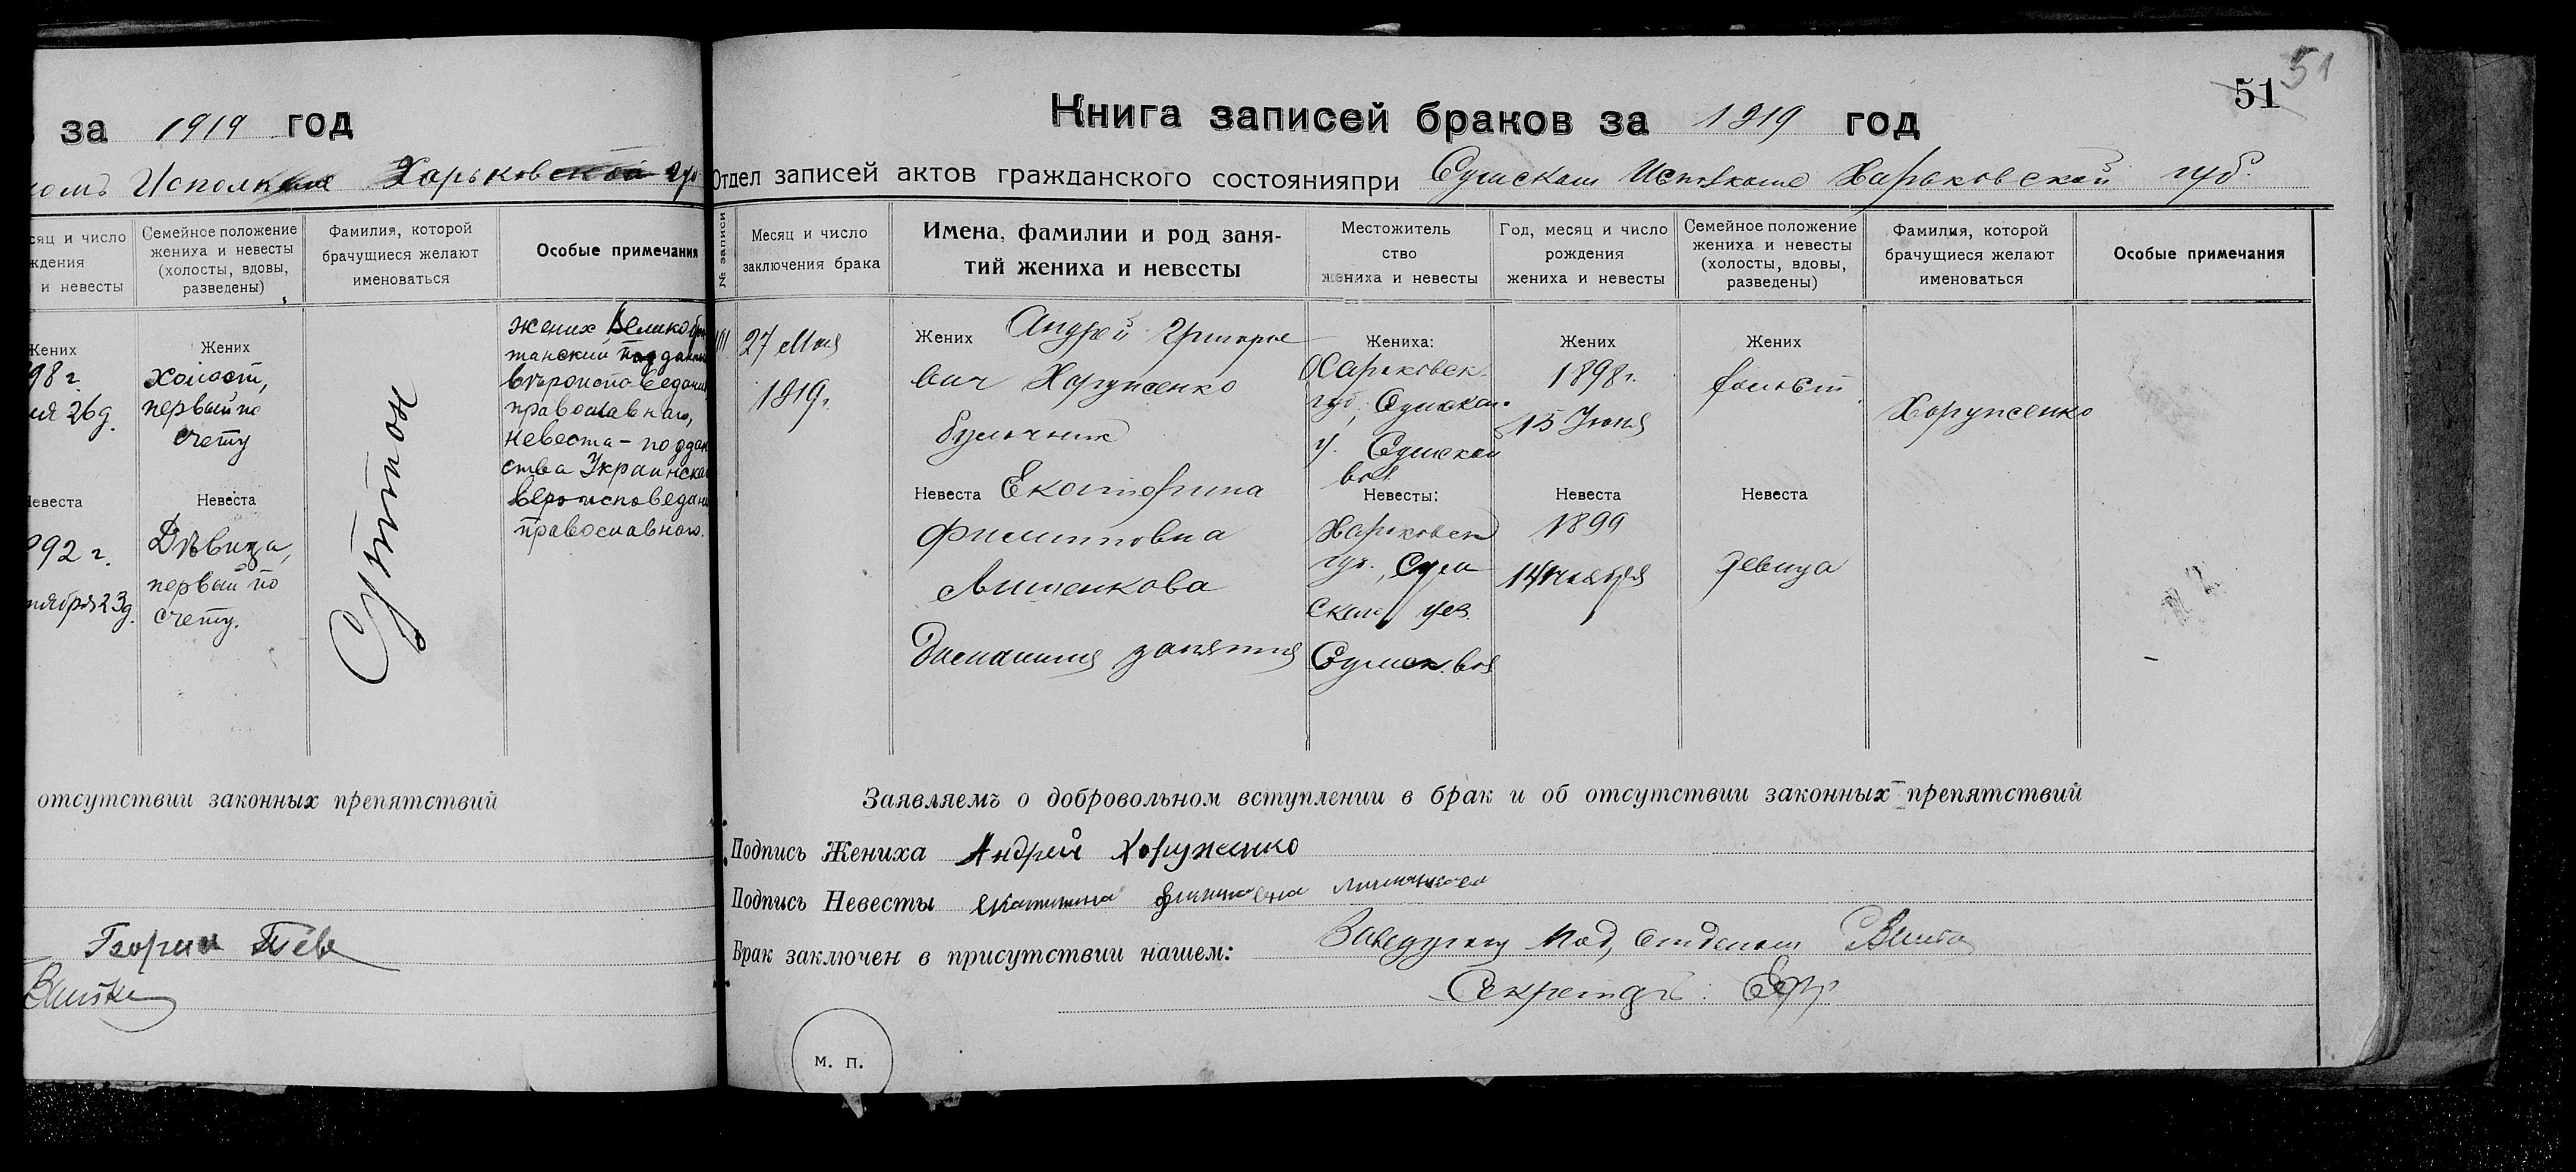 за 1919 год
Исполкоме Харьковской гу
сяц и число
ждения
и невесты
Семейное положение
жениха и невесты
(холосты, вдовы,
разведены)
Фамилия, которой
брачущиеся желают
именоваться
Особые примечания
Жених
98 г.
ия 26 д.
Невеста
92 г.
нтября 23 д.
Жених
холост,
первый по
счету
Невеста
Дѣвица,
первый по
счету.
Суттон
жених, Великобри
танский поддан
вѣроисповедания
православнаго,
невеста - поддан
ства Украинска
вероисповедани
православнаго.
отсутствии законных препятствий
Георгий
51
51
Книга записей браков за 1919 год
Отдел записей актов гражданского состоянияпри Сумском Исполкоме Харьковской губ.
№ записи
Месяц и число
заключения брака
Имена, фамилии и род заня-
тий жениха и невесты
Местожитель
ство
жениха и невесты
Год, месяц и число
рождения
жениха и невесты
Семейное положение
жениха и невесты
(холосты, вдовы,
разведены)
Фамилия, которой
брачущиеся желают
именоваться
Особые примечания
27 Мая
1919г.
Жених Андрей Григорье
вич Хоруженко
булочник
Невеста Екатерина
Филипповна
Литенкова
Домашния занятия
Жениха:
Харьковск.
губ, Сумская
у. Сумской
вол.
Невесты:
Харьковск
губ., Сум
ской уез.
Сумск. вол
Жених
1898г.
15 Июня
Невеста
1899
14 ноября
Жених
холост
Невеста
девица
Хоруженко
Заявляемъ о добровольном вступлении в брак и об отсутствии законных препятствий
Подпись Жениха Андрей Хоруженко
Подпись Невесты екатерина филиповна
Брак заключен в присутствии нашем: Заведующий Под, отделом
Секретарь:
м. п.